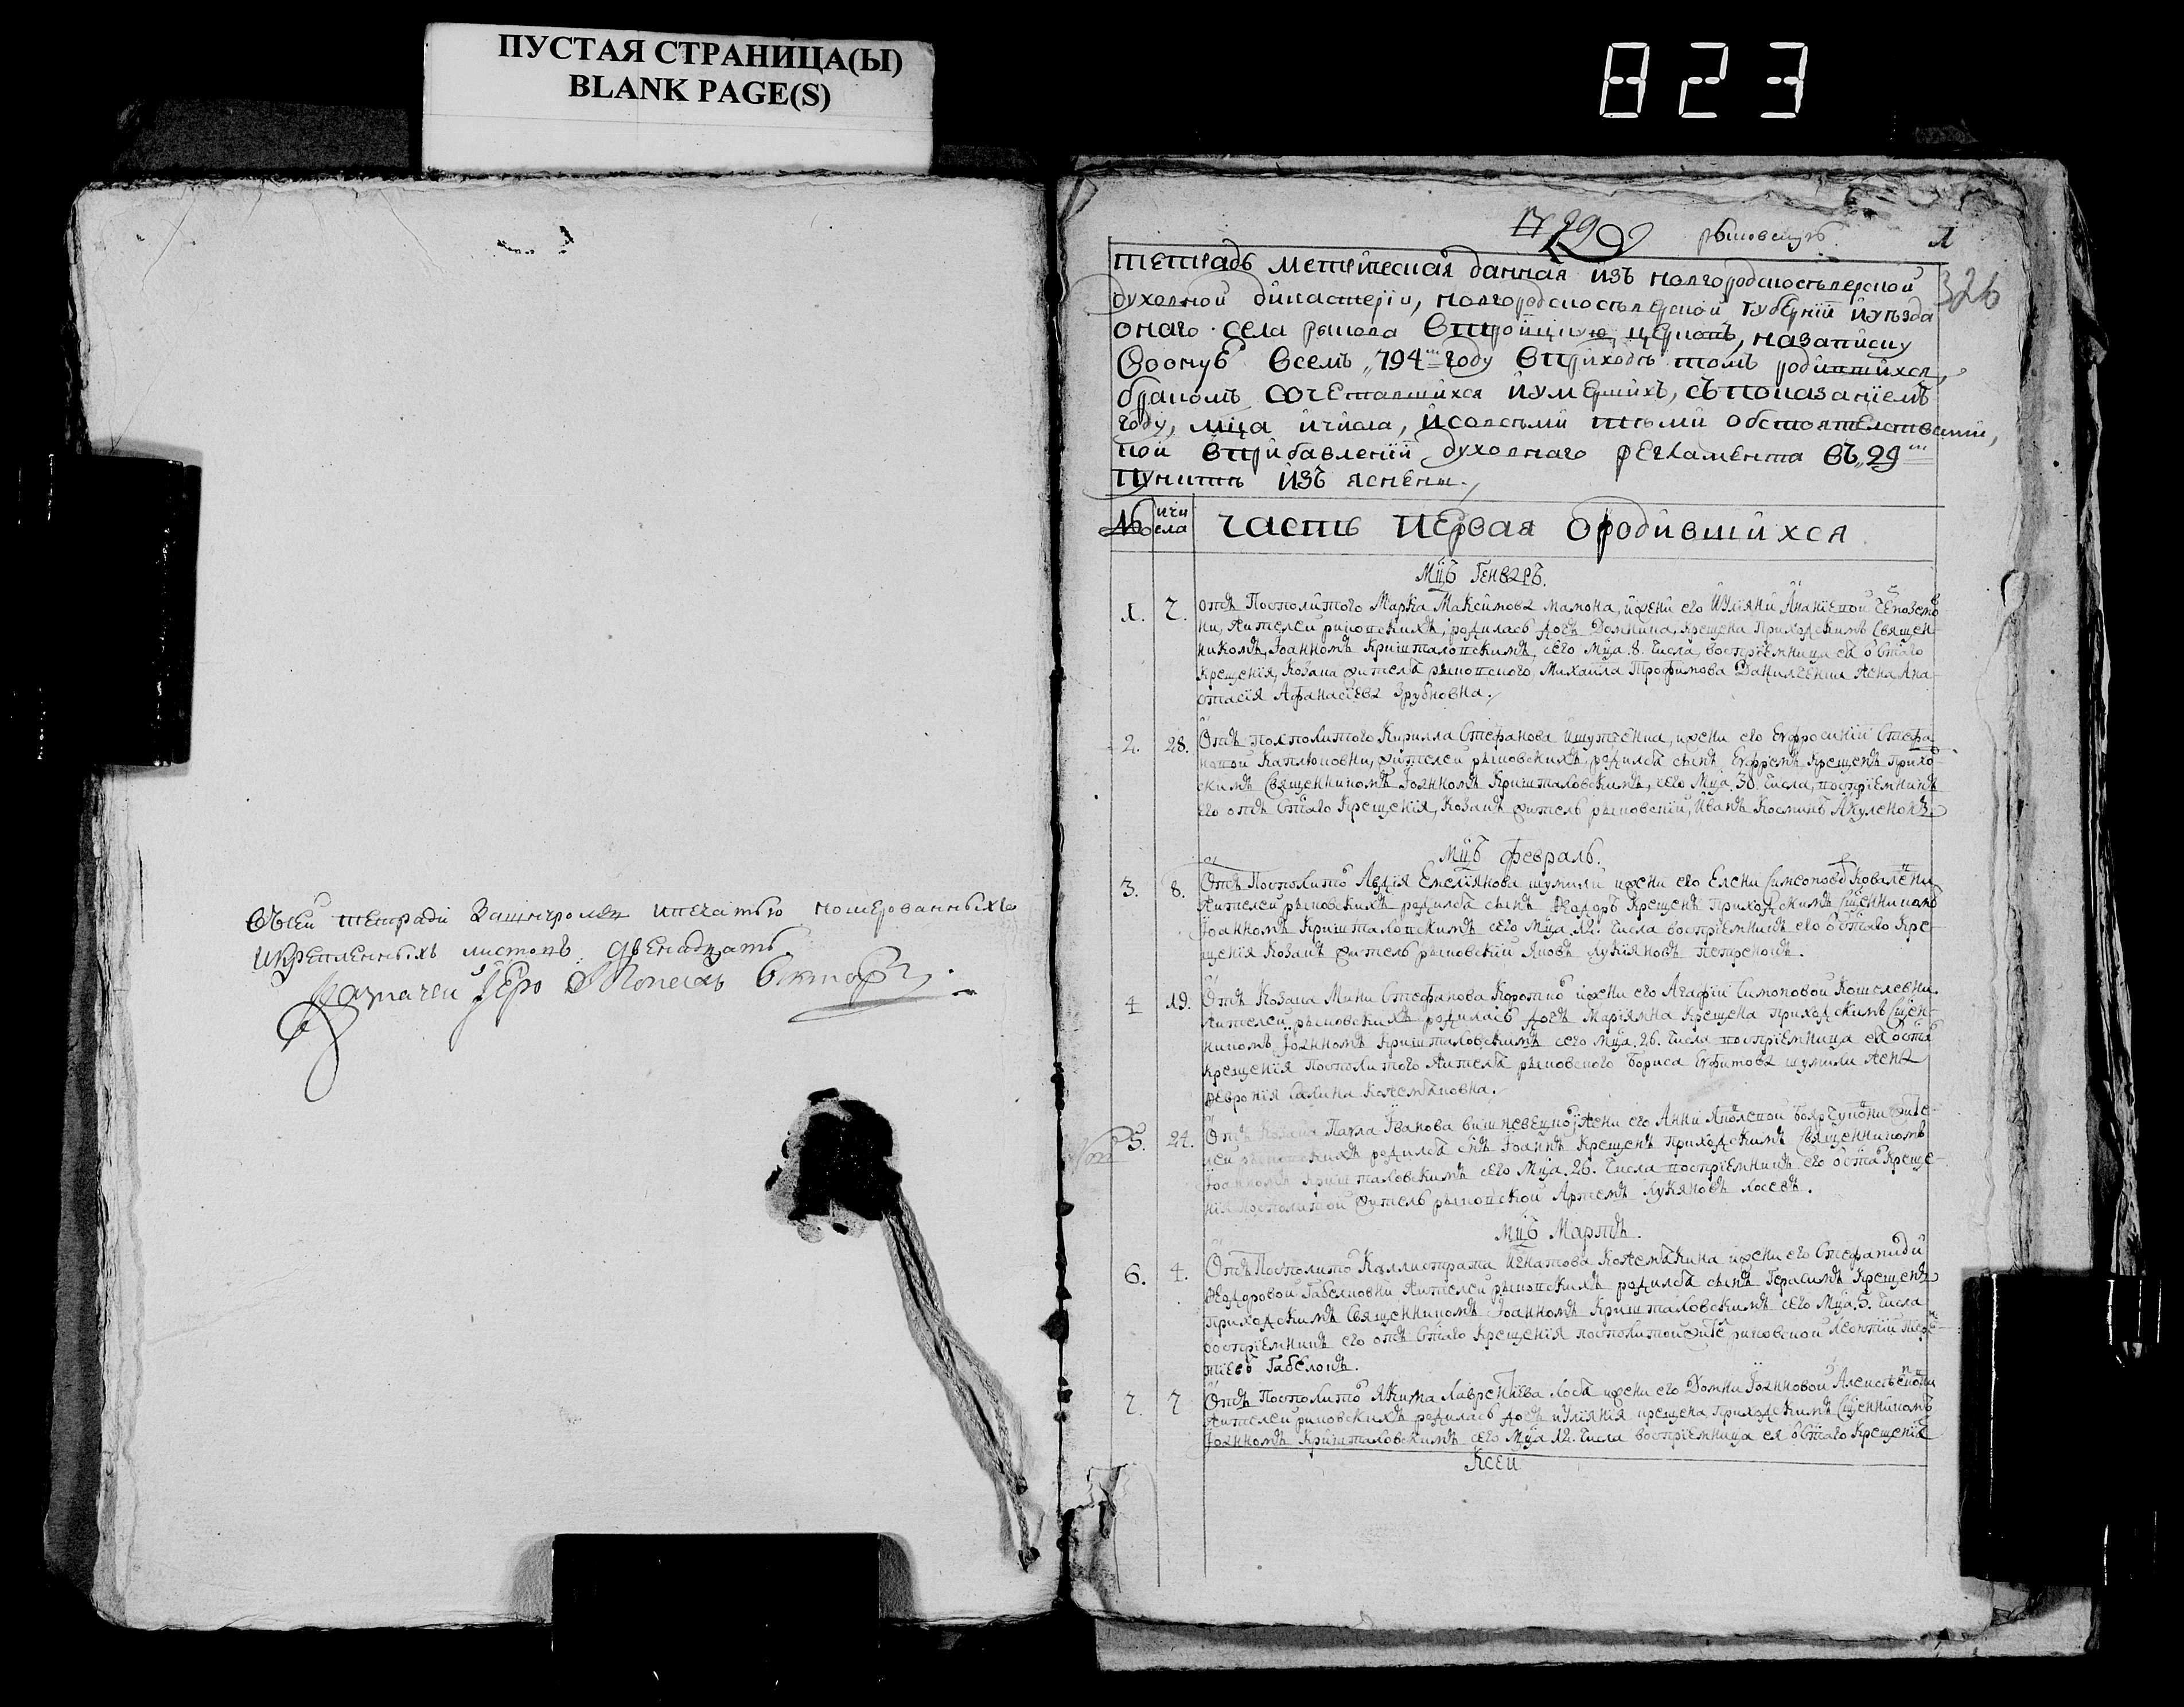 ПУСТАЯ СТРАНИЦА(Ы)
BLANK PAGE(S)
823
въ сей тетради зашнуромъ ипечатью номерованныхъ
икрепленныхъ листовъ двенадцать
казначеи Іеро
рыковскуъ 1
326
тетрадь метрическая данная изъ новгородскосѣверской
духовной дикастеріи, новгородскосѣверской губерніи иуѣзда
онаго села рыкова втроицкую церковь, назаписку
воонуб всемъ 794 году вприходѣ томъ родившихся,
бракомъ сочетавшихся иумершихъ, съпоказаніемъ
году, мца ичисла, исовсѣми тѣми обстоятелствами,
кои вприбавленіи духовнаго регламента въ 29
пунктѣ изъ яснены.
№ ичи
сла часть первая ородившихся
Мцъ Генваръ.
1. 7. отъ Посполитого Марка Максимова мамона, ижени его Иуліяни Ананіевой
ни, жителей риковскихъ, родилась дочь Домнина, крещена приходскимъ Священ-
никомъ, Іоанномъ Кришталовскимъ, сего Мца 8. числа, воспріемница ея о стаго
крещенія, козака жителя рыковского, Михайла Трофимова Даниленка жена Ана
стасія Афанасіева Зрубновна.
2. 28. Отъ посполитого Кирилла Стефанова ишутченка, ижени его Евфросиніи Стефа
новой Каплюновни, жителей рыковскихъ, родился сынъ Ефремъ крещенъ прихо
скимъ Священникомъ Іоанномъ Кришталовскимъ, сего Мца 30. числа, воспріемникъ
его отъ стаго крещенія, козакъ житель рыковскій, Иванъ Косминъ Акуленокъ
Мцъ Февраль.
3. 8. Отъ Посполито Авдія Емеліянова шумили ижени его Елени Симеонов Ковален
жителей рыковскихъ родился сынъ Феодоръ крещенъ приходскимъ сщенникомъ
Іоанномъ Кришталовскимъ сего Мца 12. числа воспріемникъ его о стаго кре-
щенія козакъ житель рыковскій Яковъ Лукіяновъ петренокъ.
4 19. Отъ Козака Мини Стефанова Коротко ижени его Агафіи Симоновой Кошелевни
жителей рыковскихъ родилась дочь Маріямна крещена приходскимъ сщен-
никомъ Іоанномъ Кришталовскимъ сего Мца 26. числа воспріемница ея о ста
крещенія посполитого жителя рыковского Бориса Евфитова шумили жена
Февронія Савина Кожемяковна.
5. 24. Отъ Козака Павла Іванова вишневецко ижени его Анни Яковлевой жите-
лей рыковскихъ родился снъ Іоаннъ крещенъ приходскимъ Священникомъ
Іоанномъ Кришталовскимъ сего Мца 26. числа воспріемникъ его о ста креще-
нія посполитой житель рыковской Артемъ Лукяновъ лосевъ.
Мцъ Мартъ.
6. 4. Отъ Посполито Каллистрата Игнатова Кожемякина ижени его Стефаниди
Феодоровой Габелковни жителей рыковскихъ родился сынъ Герасимъ крещенъ
приходскимъ Священникомъ Іоанномъ Кришталовскимъ сего Мца 5. числа
воспріемникъ его отъ стаго крещенія посполитой жите риковской Леонтій
тіевъ Габелокъ.
7. 7 Отъ Посполито Якима Лаврентіева Лося ижени его Домни Іоанновой
жителей риковскихъ родилась дочь иуліянія крещена приходскимъ сщенникомъ
Іоанномъ Кришталовскимъ сего Мца 12. числа воспріемница ея о стаго крещенія
Ксен